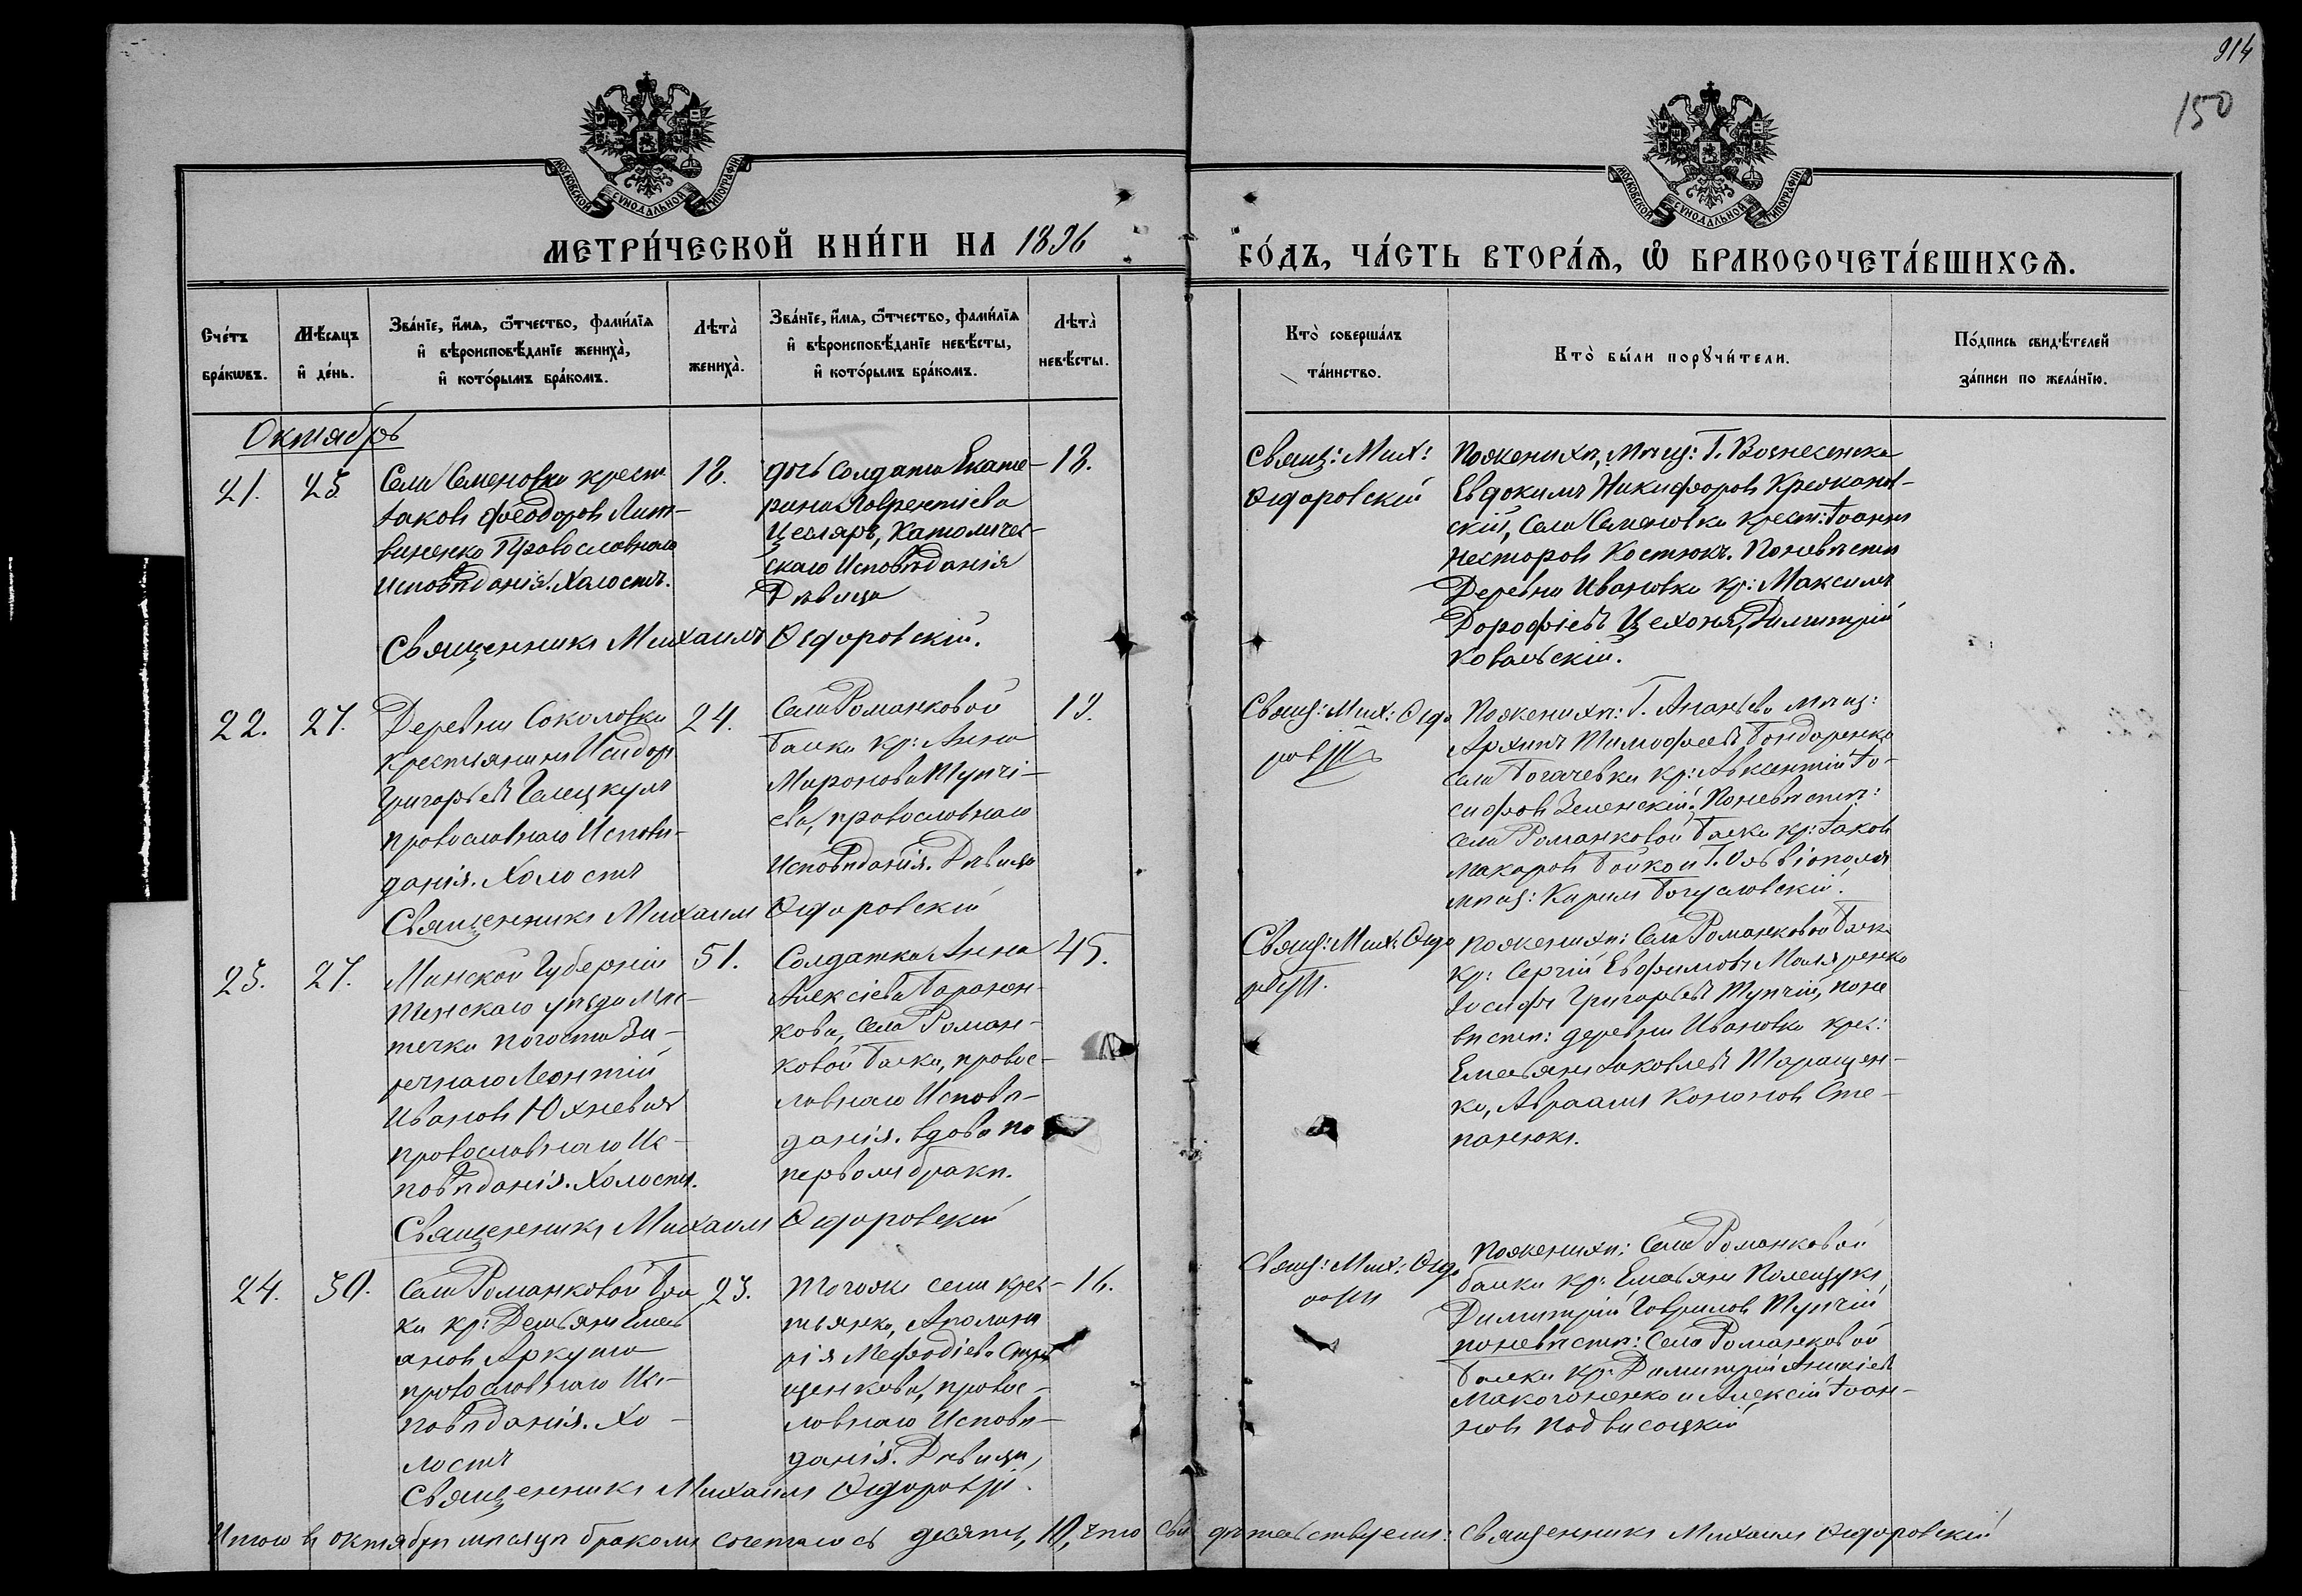 914
150
МОСКОВСКОЙ СѴНОДАЛЬНОЙ ТИПОГРАФІИ
МОСКОВСКОЙ СѴНОДАЛЬНОЙ ТИПОГРАФІИ
МЕТРИ́ЧЕСКОЙ КНИ́ГИ НА 1896
ГО́ДЪ, ЧА́СТЬ ВТОРА́Ѧ, Ѽ БРАКОСОЧЕТА́ВШИХСѦ.
Сче́тъ бра́кѡвъ.
Мѣ́сяцъ и҆ де́нь.
Зва́нїе, и҆́мѧ, ѻ҆́тчество, фами́лїѧ
и҆ вѣроисповѣ́данїе жениха̀,
и҆ кото́рымъ бра́комъ.
Лѣта̀ жениха̀.
Зва́нїе, и҆́мѧ, ѻ҆́тчество, фами́лїѧ
и҆ вѣроисповѣ́данїе невѣ́сты,
и҆ кото́рымъ бра́комъ.
Лѣта̀ невѣ́сты.
Кто̀ соверша́лъ
та́инство.
Кто̀ бы́ли порꙋчи́тели.
По́дпись свидѣ́телей
за́писи по жела́нїю.
Октябрь
21. 25
Села Семеновки крест
Іаковъ Феодоровъ Лит-
виненко Православнаго
Исповѣданія. Холостъ.
18.
дочь солдата Екате-
рина Лаврентіева
Цесляръ, Католичес-
скаго Исповѣданія
Дѣвица
18.
Священникъ Михаилъ Ѳедоровскій.
Свящ: Мих:
Ѳедоровскій
Пожениху, мѣщ: Г. Вознесенска
Евдокимъ Никифоровъ
скій, Села Семеновки крест: Іоаннъ
Несторовъ Костюкъ. Поневѣстѣ
Деревни Ивановки кр: Максимъ
Дорофіевъ Цехоня, Димитрій
Ковальскій.
22. 27.
Деревни Соколовки
крестьянинъ Исидоръ
Григорьевъ Галецкулъ
православнаго Исповѣ-
данія. Холостъ
24.
Села Романковой
Балки кр: Анна
Миронова Тупчі-
ева, православнаго
Исповѣданія. Дѣвица
19.
Священникъ Михаилъ Ѳедоровскій
Свящ: Мих: Ѳедо
Пожениху: Г. Ананьева мѣщ:
Архипъ Тимофеевъ Бондаренко
села Богачевки кр: Авксентій Іо-
сифовъ Зеленскій. Поневѣстѣ:
села Романковой Балки кр: Іаковъ
Макаровъ Бойко и Г. Ольвіополя
мѣщ: Кирилъ Богуславскій.
23. 27.
Минской Губерніи
Пинскаго уѣзда Мѣс-
течка погоста За-
речнаго Леонтій
Ивановъ Юхневич
православнаго Ис-
повѣданія. Холостъ.
51.
Солдатка Анна
Алексіева Баранен-
кова, Села Роман-
ковой Балки, правос-
лавнаго Исповѣ-
данія. вдова по
первомъ бракѣ.
45.
Священникъ Михаилъ Ѳедоровскій
Свящ: Мих: Ѳедо
Пожениху: Села Романковой Балк
кр: Сергій Евфимовъ Маляренко
Іосифъ Григорьевъ Тупчій, поне
вѣстѣ: деревни Ивановки крес:
Емельянъ Іаковлевъ Таращен-
ко, Авраамъ Кононовъ Сте-
панюкъ.
24. 30.
Села Романковой Бал
ки кр: Демьянъ Емель
яновъ Аркуша
православнаго Ис-
повѣданія. Хо-
лостъ
23.
Тогоже села крес-
тьянка, Аполина
рія Мефодіева
щенкова, правос-
лавнаго Исповѣ-
данія. Дѣвица,
16.
Священникъ Михаилъ Ѳедоровскій.
Свящ: Мих: Ѳедо
Пожениху: Села Романковой
Балки кр: Емельянъ Полещукъ
Димитрій Гавриловъ Тупчій
поневѣстѣ: Села Романковой
Балки кр: Димитрій Аникіевъ
Макогоненко и Алексій Іоан-
новъ Подвисоцкій
Итого въ октябрѣ мѣсяцѣ бракомъ сочеталось десять, 10, что сви дѣтельствуемъ: Священникъ Михаилъ Ѳедоровскій